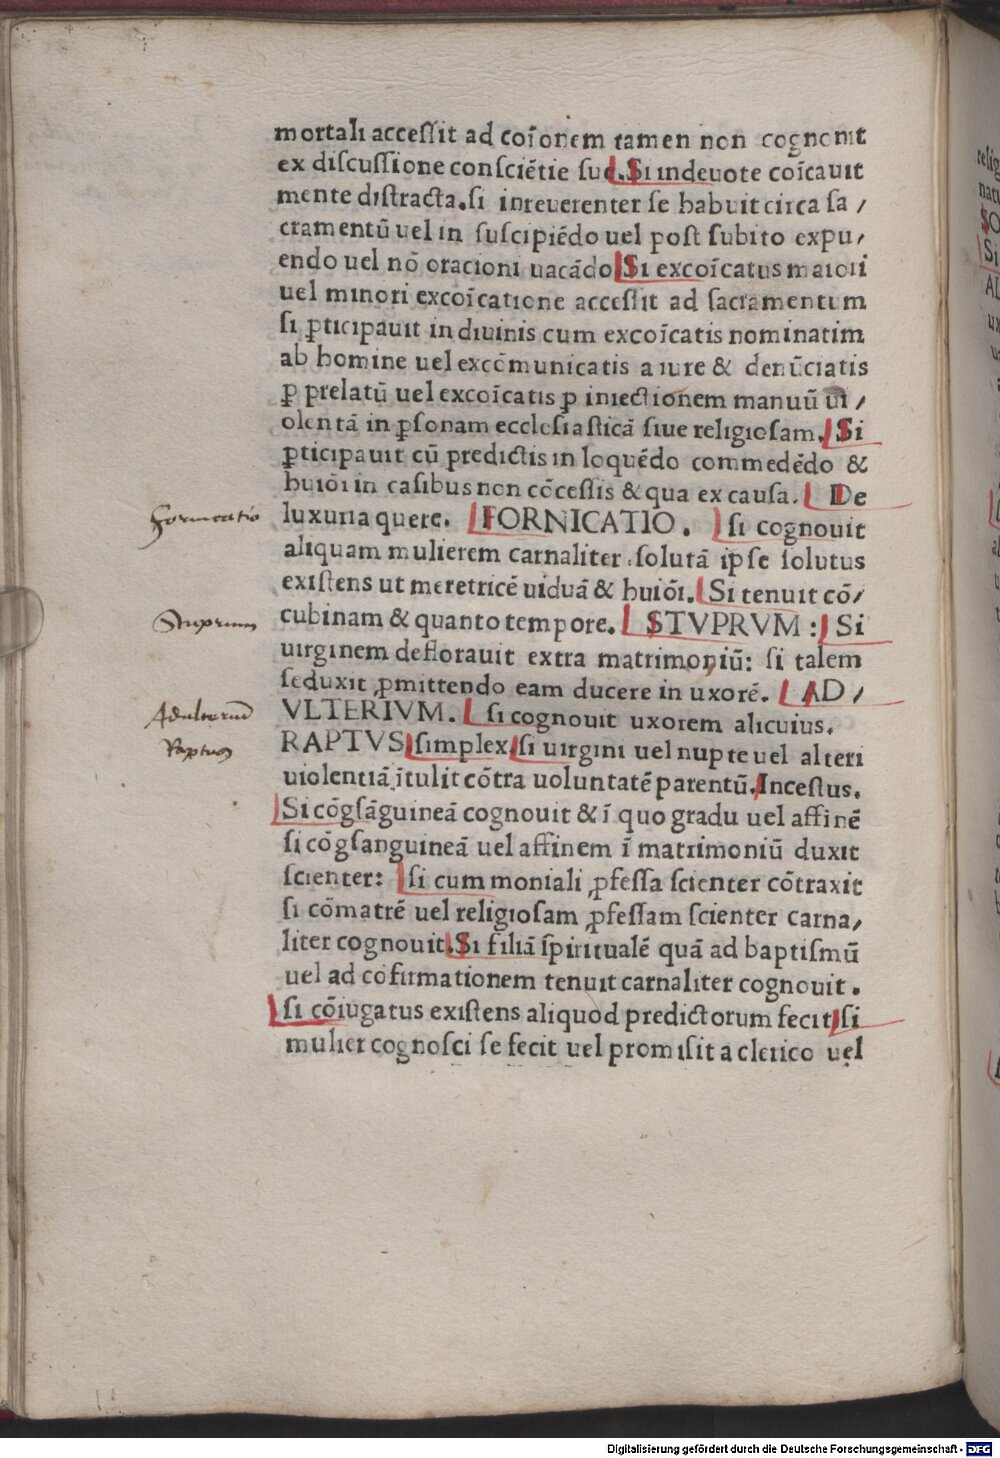 mortali acceſſit ad coīonem tamen non cognouit
ex diſcuſſione conſciētie ſue. Si indeuote coīcauit
mente diſtracta. ſi inreuerenter ſe habuit circa ſa /
cramentū uel in ſuſcipiēdo uel poſt ſubito expu /
endo uel nō oracioni uacādo Si excoīcatus maiori
uel minori excoīcatione acceſſit ad ſacramentum
ſi ꝑticipauit in diuinis cum excoīcatis nominatim
ab homine uel excōmunicatis a iure & denūciatis
ꝑ prelatū uel excoīcatis ꝑ iniectionem manuū ui /
olentā in ꝑſonam eccleſiaſticā ſiue religioſam. Si
ꝑticipauit cū predictis in loquēdo commedēdo &
huiōi in caſibus non cōceſſis & qua ex cauſa. De
Fornicatio
luxuria quere. FORNICATIO. ſi cognouit
aliquam mulierem carnaliter ſolutā ipſe ſolutus
exiſtens ut meretricē uiduā & huiōi. Si tenuit cō /
Stuprum
cubinam & quanto tempore. STVPRVM : Si
uirginem deflorauit extra matrimoniū: ſi talem
ſeduxit ꝓmittendo eam ducere in uxorē. AD /
Adulterium
VLTERIVM. ſi cognouit uxorem alicuius.
Raptus
RAPTVS ſimplex ſi uirgini uel nupte uel alteri
uiolentiā ītulit cōtra uoluntatē parentū. Inceſtus.
Si cōgſāguineā cognouit & ī quo gradu uel affinē
ſi cōgſanguineā uel affinem ī matrimoniū duxit
ſcienter: ſi cum moniali ꝓfeſſa ſcienter cōtraxit
ſi cōmatrē uel religioſam ꝓfeſſam ſcienter carna /
liter cognouit. Si filiā ſpiritualē quā ad baptiſmū
uel ad cōfirmationem tenuit carnaliter cognouit .
ſi cōiugatus exiſtens aliquod predictorum fecit ſi
mulier cognoſci ſe fecit uel promiſit a clerico uel
relig
natu
SO
Si
AD
ux
Digitalisierung gefördert durch die Deutsche Forschungsgemeinschaft - DFG